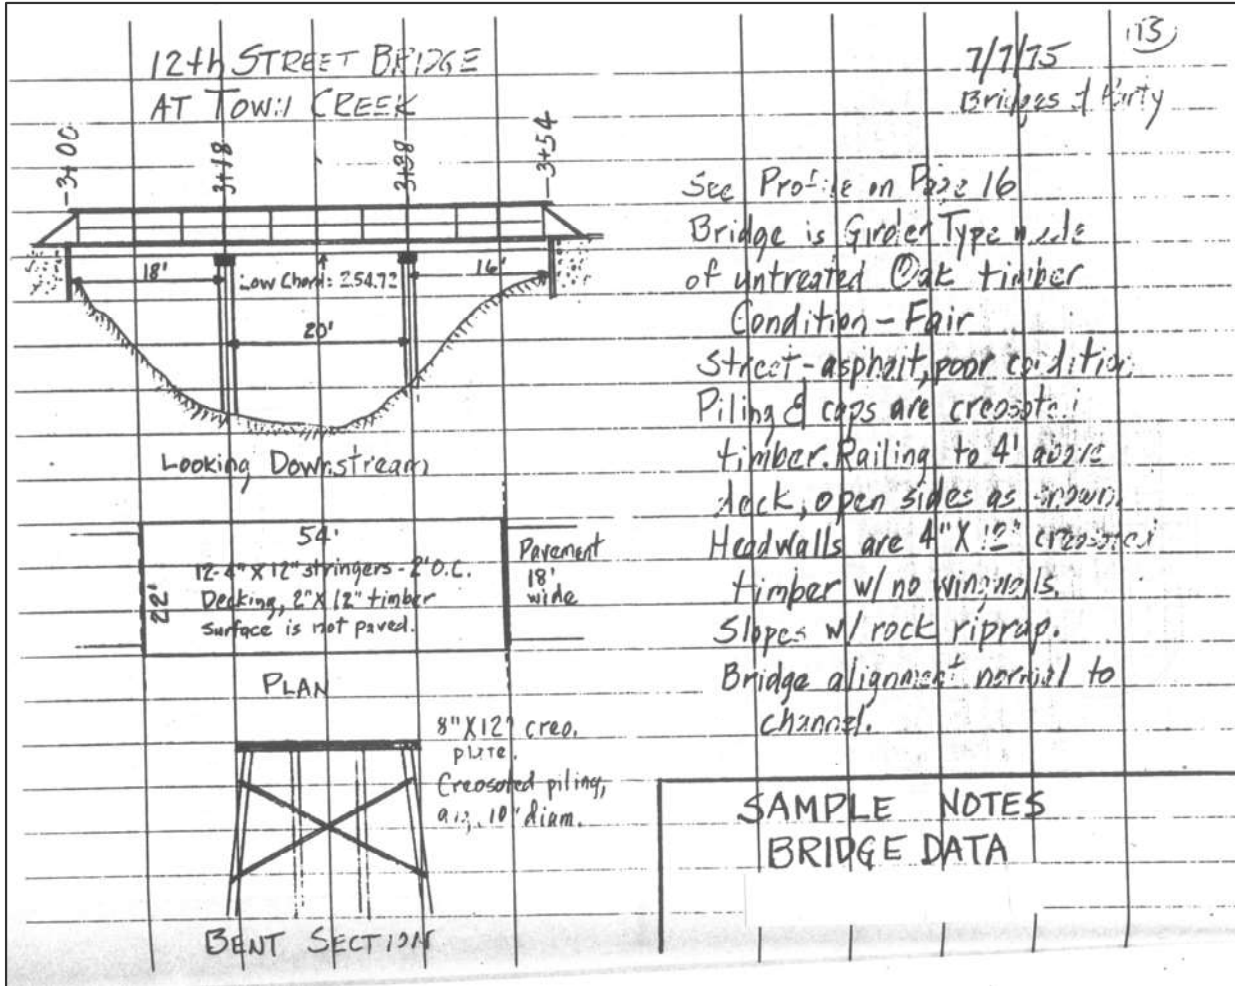 12th STREET BRIDGE
AT TOWN CREEK
7/7/75
Bridges & Party
3+00
3+18
3+38
3+54
18'
Low Chord: 254.72
16'
20'
Looking Downstream
54'
22'
12-4" X 12" stringers - 2' O.C.
Decking, 2" X 12" timber
Surface is not paved.
Pavement
18'
wide
PLAN
8" X 12" creo.
plate.
Creosoted piling,
10" diam.
BENT SECTION
See Profile on Page 16
Bridge is Girder Type made
of untreated Oak timber
Condition - Fair
Street - asphalt, poor condition
Piling & caps are creosoted
timber. Railing to 4' above
deck, open sides as shown.
Headwalls are 4" X 12" creosoted
timber w/ no wingwalls.
Slopes w/ rock riprap.
Bridge alignment normal to
channel.
SAMPLE NOTES
BRIDGE DATA